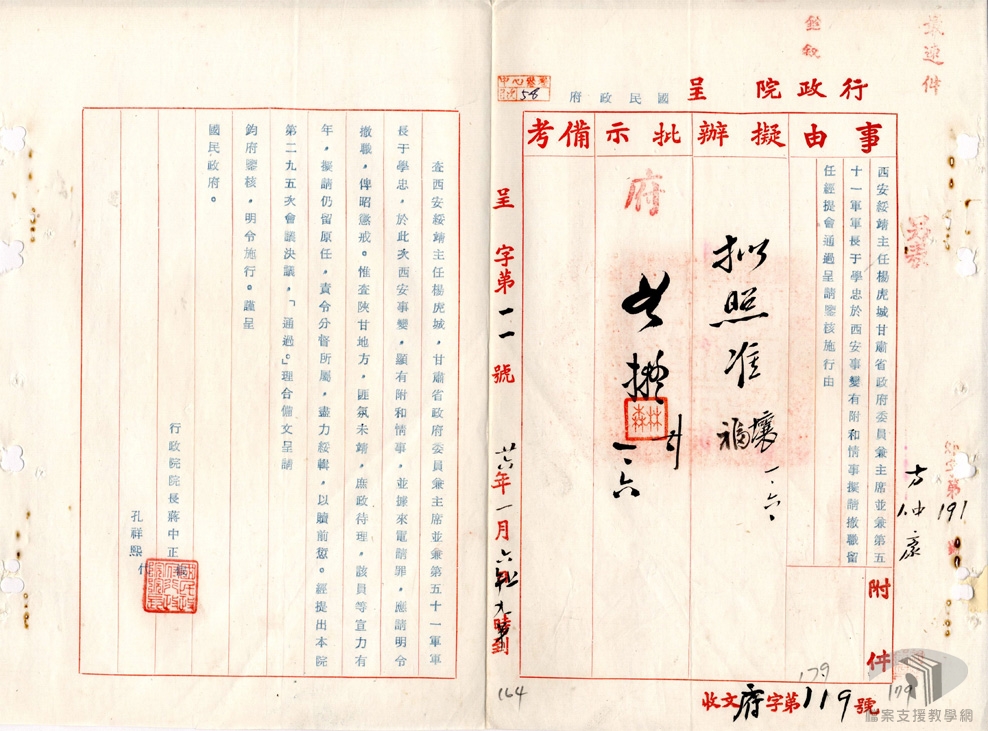 最速件
銓敘
行政院呈
國民政府
事由
擬辦
批示
備考
西安綏靖主任楊虎城甘肅省政府委員兼主席並兼第五
十一軍軍長于學忠於西安事變有附和情事擬請撤職留
任經提會通過呈請鑒核施行由
附件
擬照准
一、六
府
如擬
林森
一、六
58
呈字第一一號
廿六年一月六日
時到
收文府字第119號
179
179
191
164
查西安綏靖主任楊虎城,甘肅省政府委員兼主席並兼第五十一軍軍
長于學忠,於此次西安事變,顯有附和情事,並據來電請罪,應請明令
撤職,俾昭懲戒。惟查陝甘地方,匪氛未靖,庶政待理,該員等宣力有
年,擬請仍留原任,責令分督所屬,盡力綏輯,以贖前愆。經提出本院
第二九五次會議決議,「通過。」理合備文呈請
鈞府鑒核,明令施行。謹呈
國民政府。
行政院院長蔣中正
孔祥熙代
檔案支援教學網